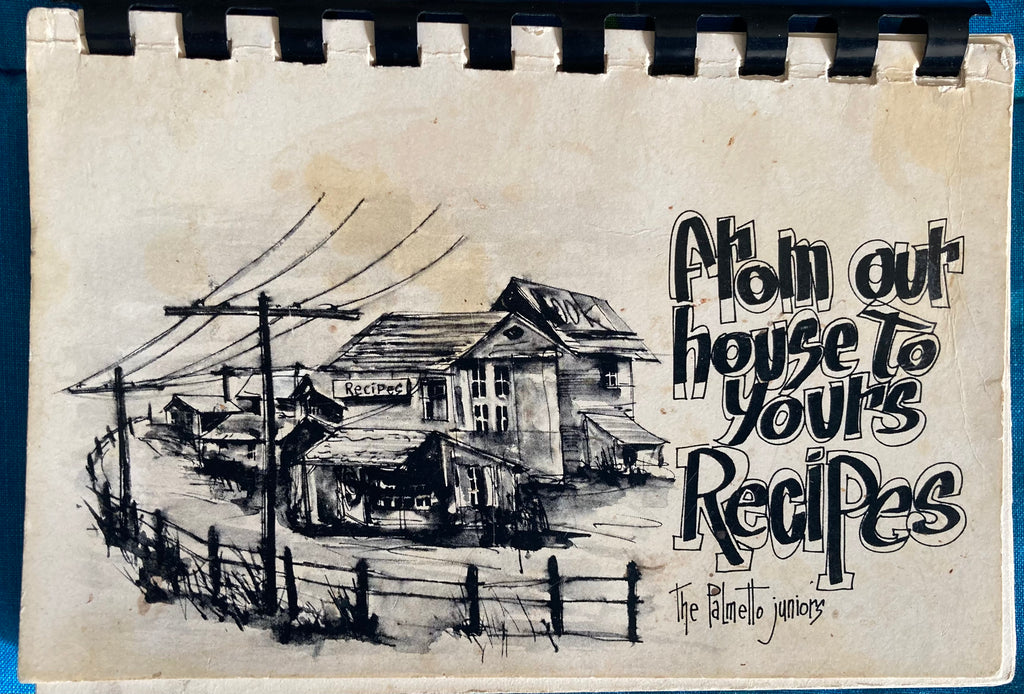 Recipes
from our
house to
yours
Recipes
the Palmetto juniors